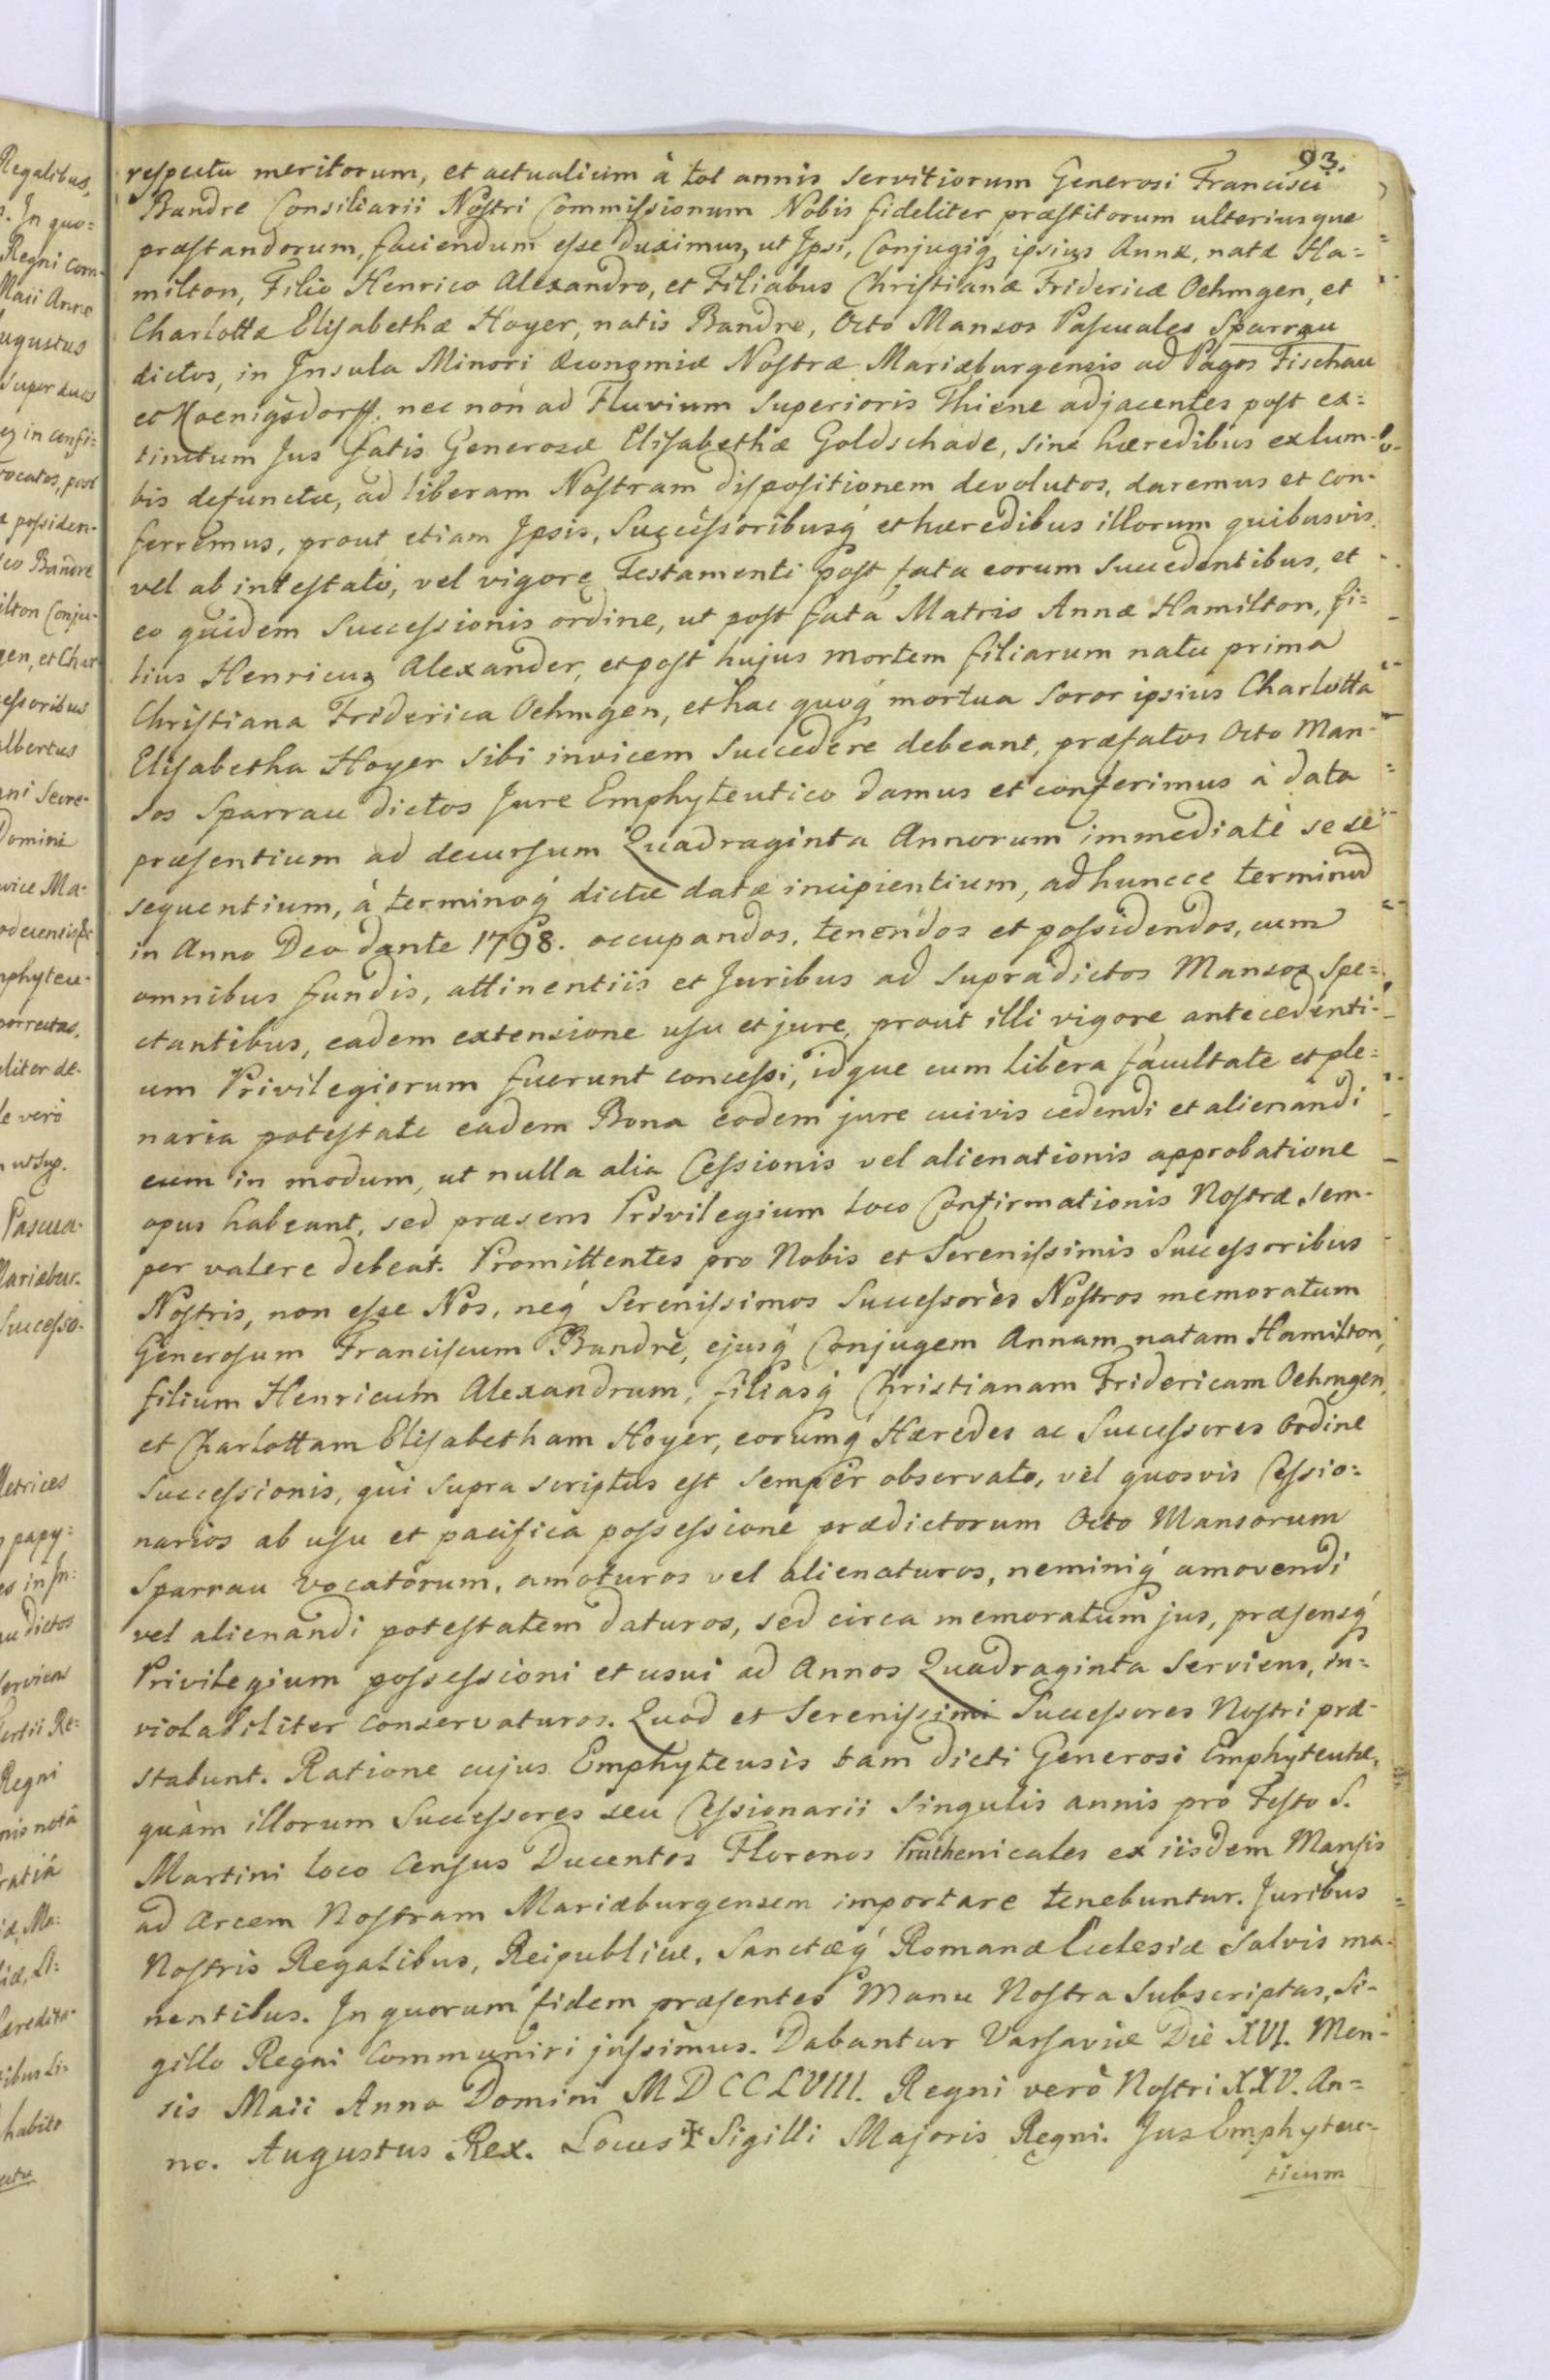 93.
respectu meritorum, et actualium à tot annis servitiorum Generosi Francisci
Bandre Consiliarii Nostri Commissionum Nobis fideliter præstitorum ulteriusque
præstandorum, faciendum esse duximus, ut Ipsi, Conjugiq́ ipsius Annæ, natæ Ha=
milton, Filio Henrico Alexandro, et Filiabus Christianæ Fridericæ Oehmgen, et
Charlottæ Elisabethæ Hoyer, natis Bandre, Octo Mansos Pascuales Sparrau
dictos, in Insula Minori Œconomiæ Nostræ Mariæburgensis ad Pagos Fischau
et Koenigsdorff, nec non ad Fluvium Superioris Thiene adjacentes post ex=
tinctum Jus fatis Generosæ Elisabethæ Goldschade, sine hæredibus ex lum-
bis defunctæ, ad liberam Nostram dispositionem devolutos, daremus et con-
ferremus, prout etiam Ipsis, Successoribusq́ et hæredibus illorum quibusvis
vel ab intestato, vel vigore Testamenti post fata eorum succedentibus, et
eo quidem Successionis ordine, ut post fata Matris Annæ Hamilton, fi=
lius Henricus Alexander, et post hujus mortem filiarum natu prima
Christiana Friderica Oehmgen, et hac quoq́ mortua soror ipsius Charlotta
Elisabetha Hoyer sibi invicem succedere debeant, præfatos Octo Man-
sos Sparrau dictos Jure Emphyteutico damus et conferimus à data
præsentium ad decursum Quadraginta Annorum immediatè se se
sequentium, à terminoq́ dictæ datæ incipientium, ad huncce terminū
in Anno Deo dante 1798. occupandos, tenendos et possidendos, cum
omnibus fundis, attinentiis et Juribus ad supradictos Mansos spe=
ctantibus, eadem extensione usu et jure, prout illi vigore antecedenti-
um Privilegiorum fuerunt concessi, idque cum libera facultate et ple=
naria potestate eadem Bona eodem jure cuivis cedendi et alienandi
eum in modum, ut nulla alia Cessionis vel alienationis approbatione
opus habeant, sed præsens Privilegium loco Confirmationis Nostræ sem-
per valere debeat. Promittentes pro Nobis et Serenissimis Successoribus
Nostris, non esse Nos, neq́ Serenissimos Successores Nostros memoratum
Generosum Franciscum Bandrè, ejusq́ Conjugem Annam natam Hamilton,
filium Henricum Alexandrum, filiasq́ Christianam Fridericam Oehmgen,
et Charlottam Elisabetham Hoyer, eorumq́ Hæredes ac Successores Ordine
Successionis, qui supra scriptus est semper observato, vel quosvis Cessio=
narios ab usu et pacifica possessione prædictorum Octo Mansorum
Sparrau vocatorum, amoturos vel alienaturos, neminiq́ amovendi
vel alienandi potestatem daturos, sed circa memoratum jus, præsensq́
Privilegium possessioni et usui ad Annos Quadraginta serviens, in=
violabiliter conservaturos. Quod et Serenissimi Successores Nostri præ-
stabunt. Ratione cujus Emphyteusis tam dicti Generosi Emphyteutæ,
quàm illorum Successores seu Cessionarii singulis annis pro Festo S.
Martini loco Census Ducentos Florenos Pruthenicales ex iisdem Mansis
ad Arcem Nostram Mariæburgensem importare tenebuntur. Juribus
Nostris Regalibus, Reipublicæ, Sanctæq́ Romanæ Ecclesiæ salvis ma-
nentibus. In quorum fidem præsentes Manu Nostra subscriptas, Si-
gillo Regni communiri jussimus. Dabantur Varsaviæ Die XVI. Men-
sis Maii Anno Domini MDCCLVIII. Regni verò Nostri XXV. An=
no. Augustus Rex. Locus ✠ Sigilli Majoris Regni. Jus Emphyteu-
ticum